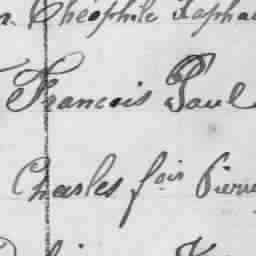 Théophile Rapha
Francois Paul
Charles fois Pierre